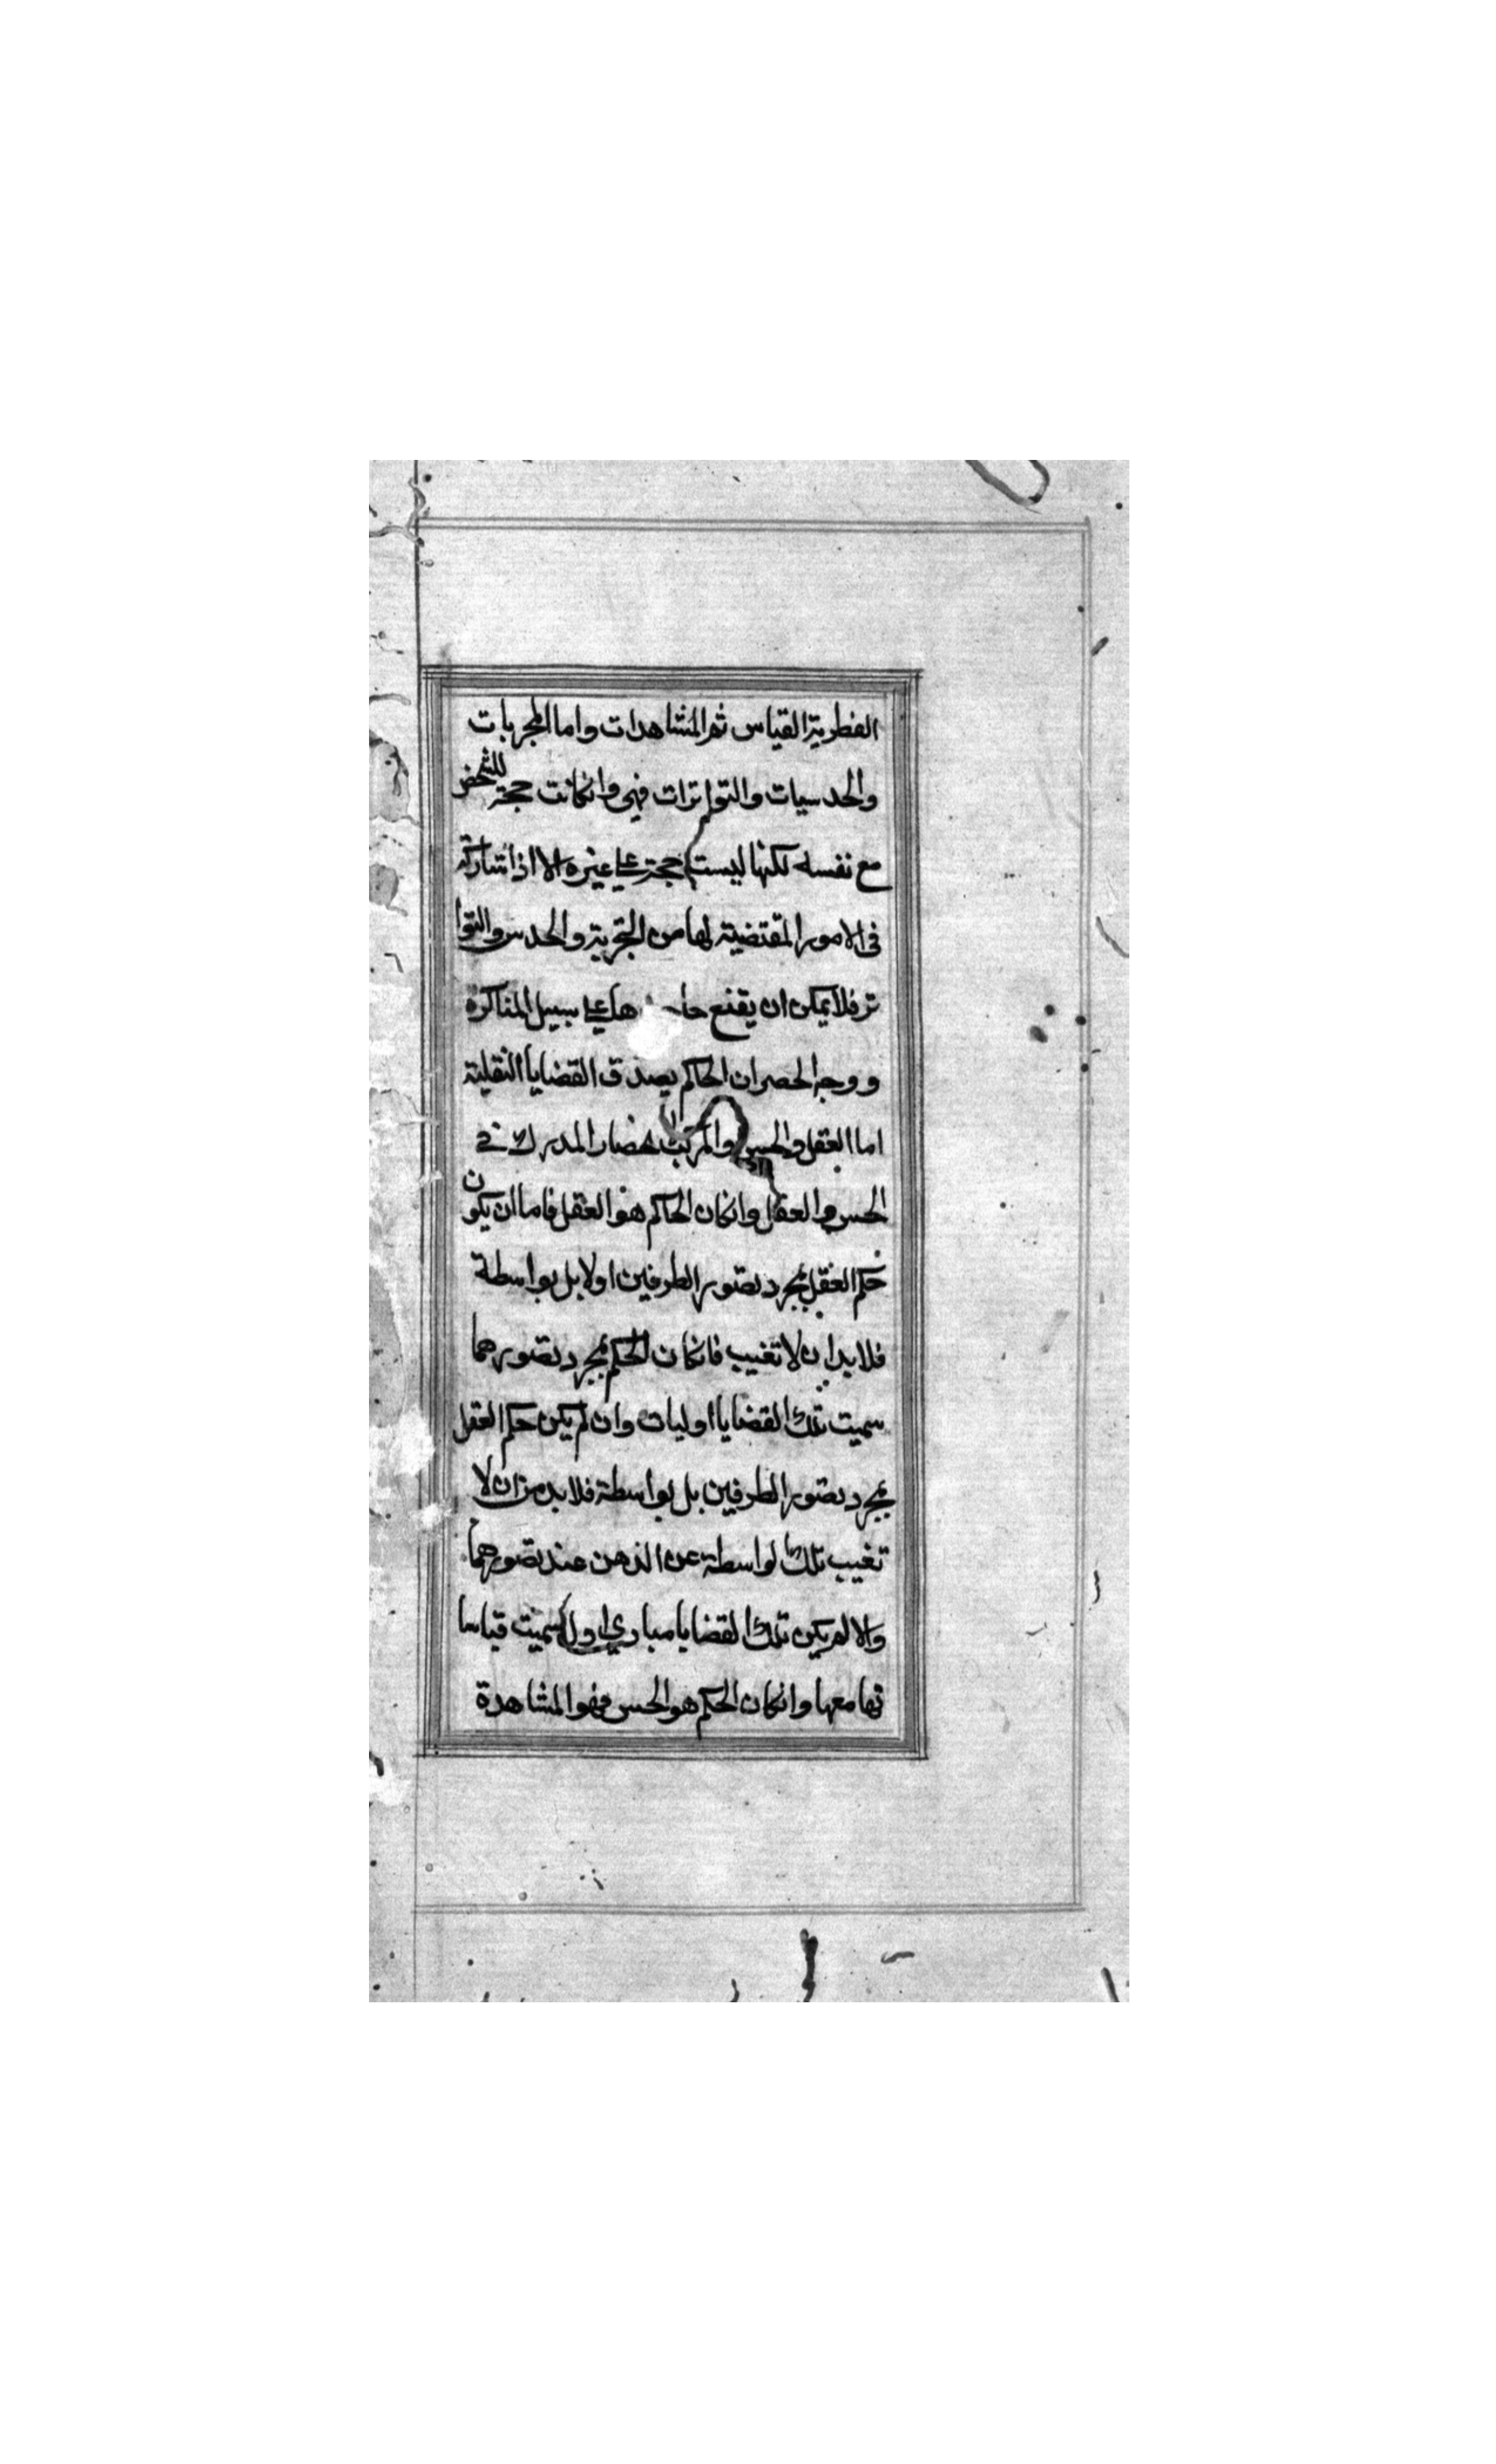 الفطرية القياس ثم المشاهدات واما المجربات
والحدسيات والتواترات فهي وانكانت حجة للشخص
مع نفسه لكنها ليست حجة على غيره الا اذا شاركة
فى الامور المقتضية لها من التجربة والحدس والتوا
تر فلا يمكن ان يقنع على سبيل المناكرة
ووجه الحصر ان الحاكم بصدق القضايا النقلية
اما العقل والحس والمركب لحصار المدرك في
الحس والعقل وانكان الحاكم هو العقل فاما ان يكون
حكم العقل بمجرد تصور الطرفين اولا بل بواسطة
فلابد ان لا تغيب فانكان الحكم بمجرد تصورهما
سميت تلك القضايا اوليات وان لم يكن حكم العقل
بمجرد تصور الطرفين بل بواسطة فلابد من ان لا
تغيب تلك لواسطة عن الذهن عند تصورهما
والا لم يكن تلك القضايا مبادي اول سميت قياسا
تها معها وانكان الحكم هو الحس فهو المشاهدة